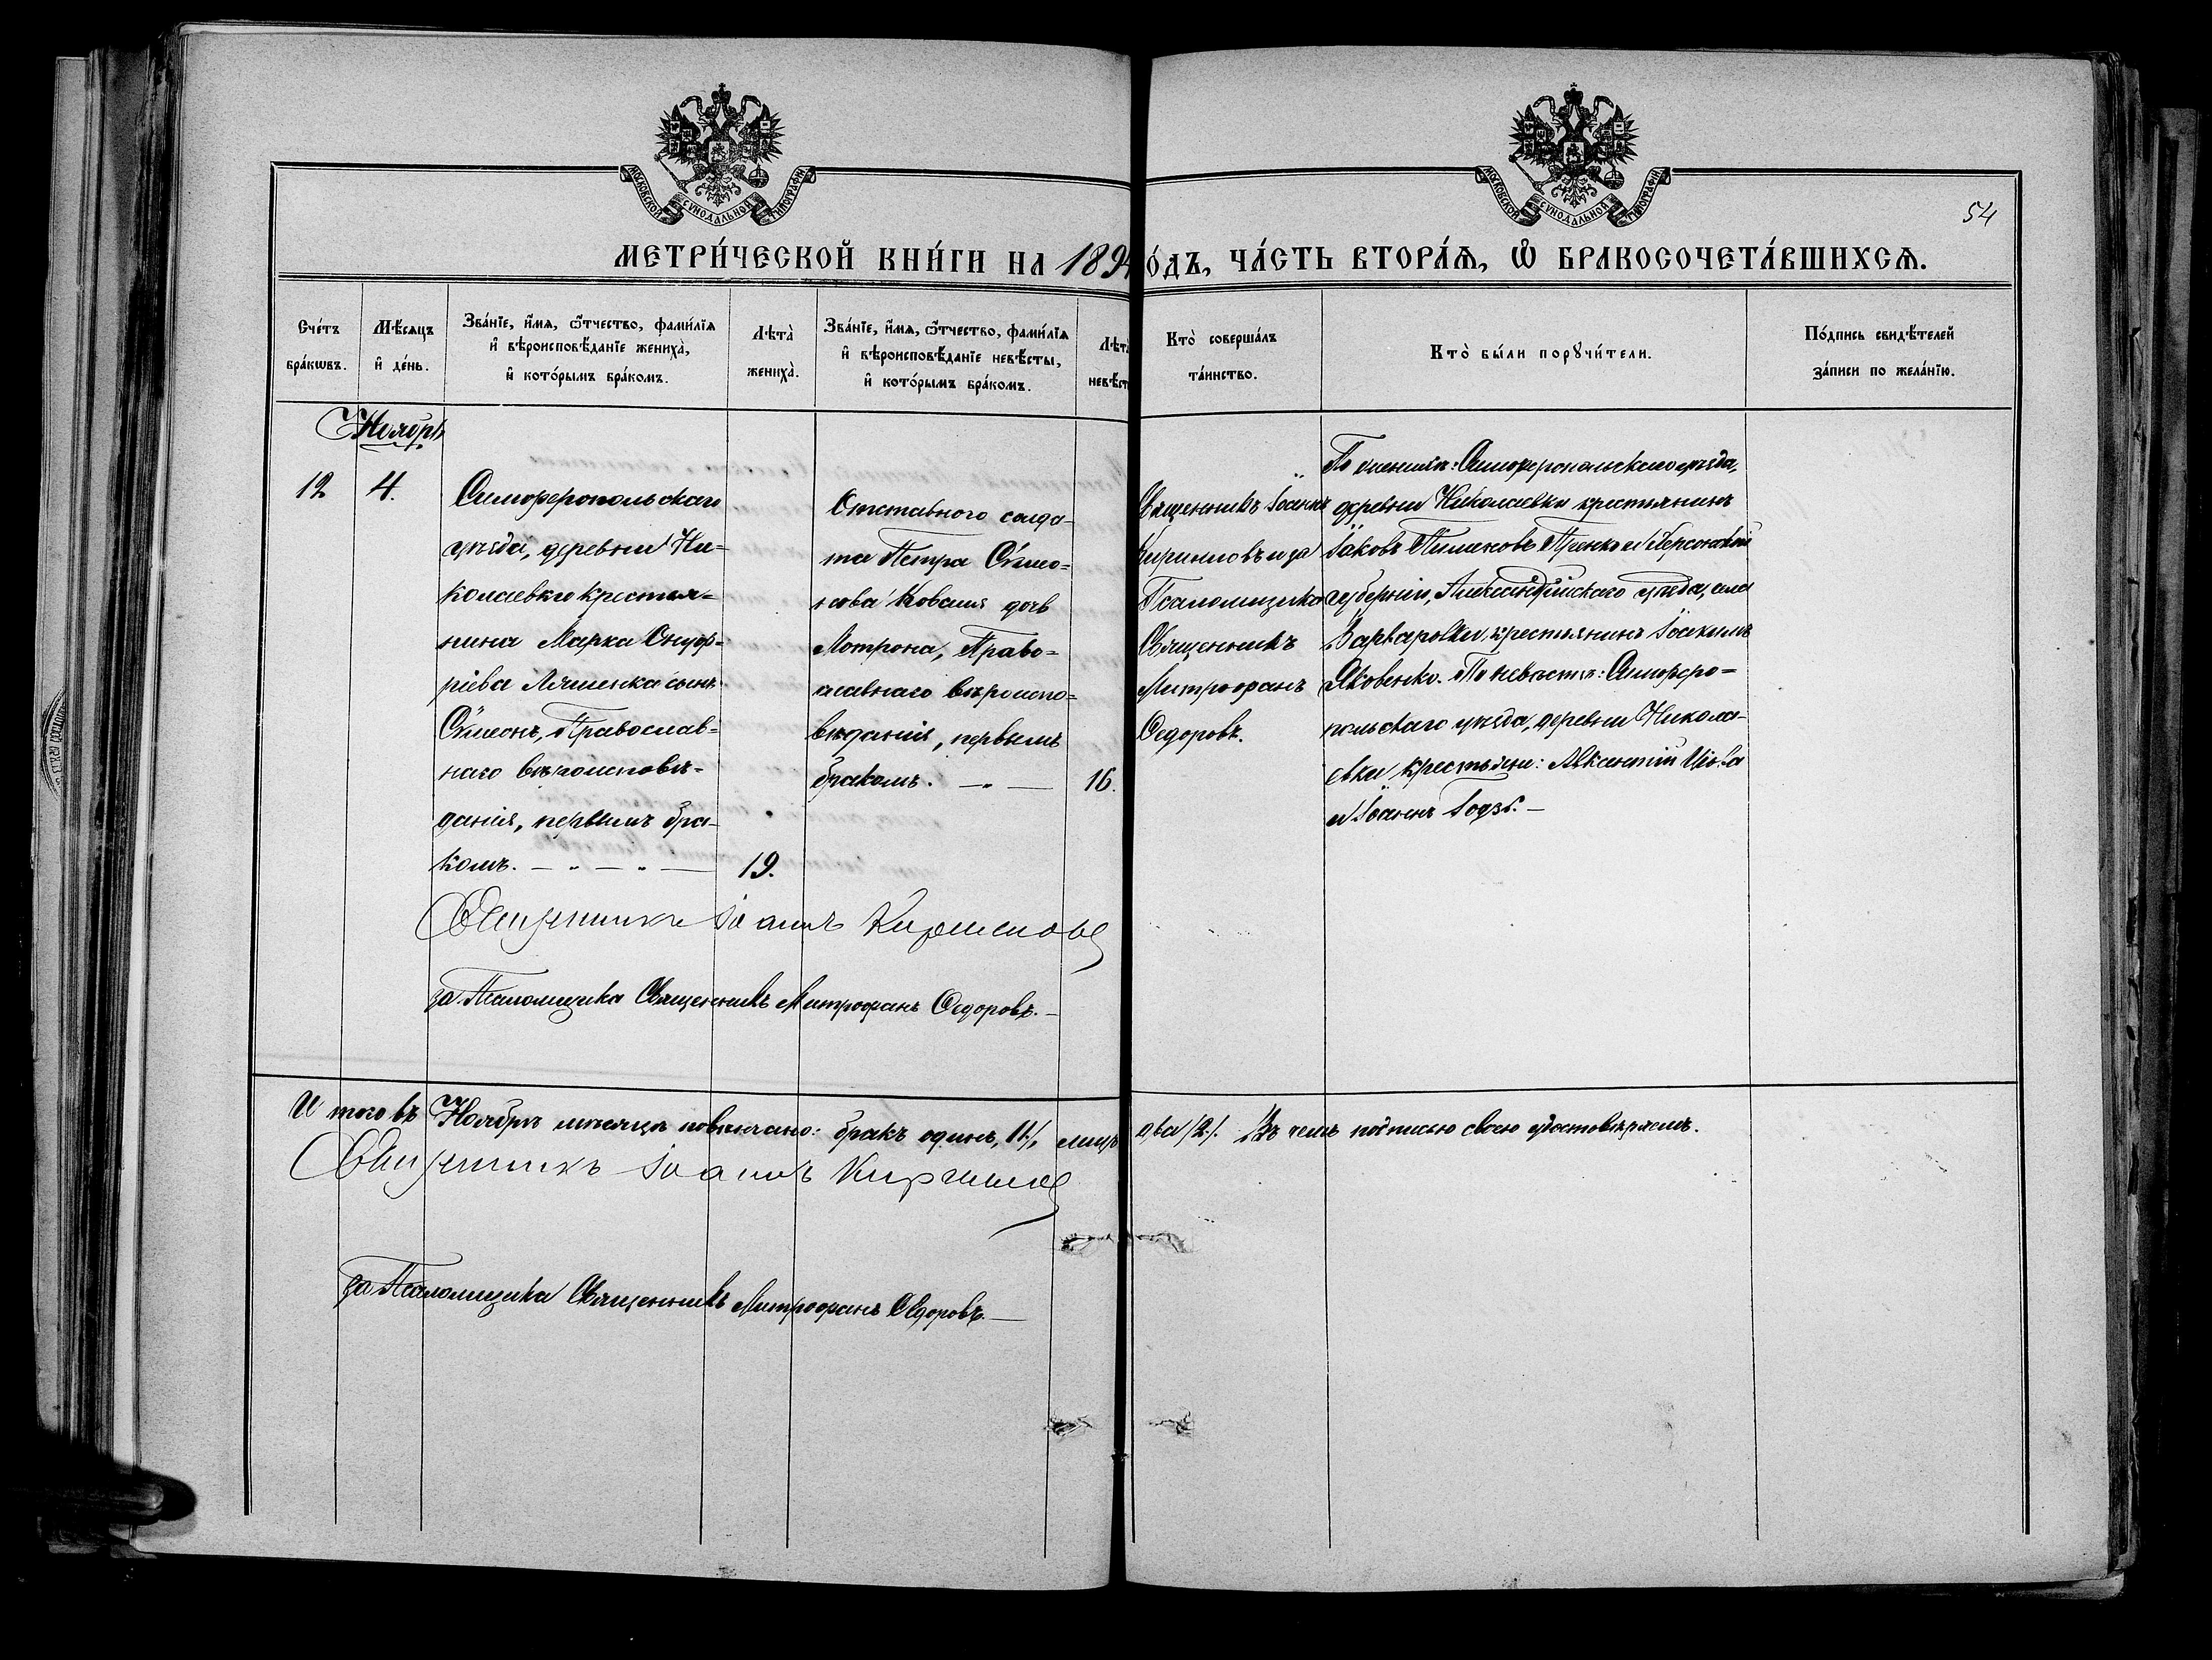 МОСКОВСКОЙ СУНОДАЛЬНОЙ ТИПОГРАФІИ
МОСКОВСКОЙ СУНОДАЛЬНОЙ ТИПОГРАФІИ
54
МЕТРИ́ЧЕСКОЙ КНИ́ГИ НА 1894
О́ДЪ, ЧА́СТЬ ВТОРА́Ѧ, Ѡ҆ БРАКОСОЧЕТА́ВШИХСѦ.
Сче́тъ бра́кѡвъ.
Мѣ́сяцъ и҆ де́нь.
Зва́нїе, и҆́мѧ, ѻ҆́тчество, фами́лїѧ
и҆ вѣроисповѣ́данїе жениха̀,
и҆ кото́рымъ бра́комъ.
Лѣта̀ жениха̀.
Зва́нїе, и҆́мѧ, ѻ҆́тчество, фами́лїѧ
и҆ вѣроисповѣ́данїе невѣ́сты,
и҆ кото́рымъ бра́комъ.
Лѣта̀ невѣст
Кто̀ соверша́лъ
та́инство.
Кто̀ бы́ли порꙋчи́тели.
По́дпись свидѣ́телей
за́писи по жела́нїю.
Ноябрь
12
4.
Симферопольскаго
уѣзда, деревни Ни=
колаевки крестья=
нина Марка Онуф=
ріева Ляшенка сынъ
Сѵмеонъ, Православ=
наго вѣроисповѣ=
данія, первымъ бра=
комъ.
19.
Отставного солда=
та Петра Сѵмео=
нова Коваля дочь
Мотрона, Право=
славнаго вѣроиспо=
вѣданія, первымъ
бракомъ.
16.
Священникъ Іоаннъ
Кирилловъ и за
Псаломщика
Священникъ
Митрофанъ
Ѳедоровъ.
По женихѣ: Симферопольскаго уѣзда,
деревни Николаевки крестьянинъ
Іаковъ Пименовъ и Херсонской
губерніи, Александрійскаго уѣзда, села
Варваровки, крестьянинъ Іоакимъ
Яковенко. По невѣстѣ: Симферо=
польскаго уѣзда, деревни Никола=
евки крестьяне: Авксентій
и Іоаннъ
Священникъ Іоаннъ Кирилловъ
за Псаломщика Священникъ Митрофанъ Ѳедоровъ.
И того въ Ноябрѣ мѣсяцѣ повѣнчано: бракъ одинъ, /1/, лицъ два /2/. Въ чемъ подписью своею удостовѣряемъ.
Священникъ Іоаннъ Кирилловъ
за Псаломщика Священникъ Митрофанъ Ѳедоровъ.